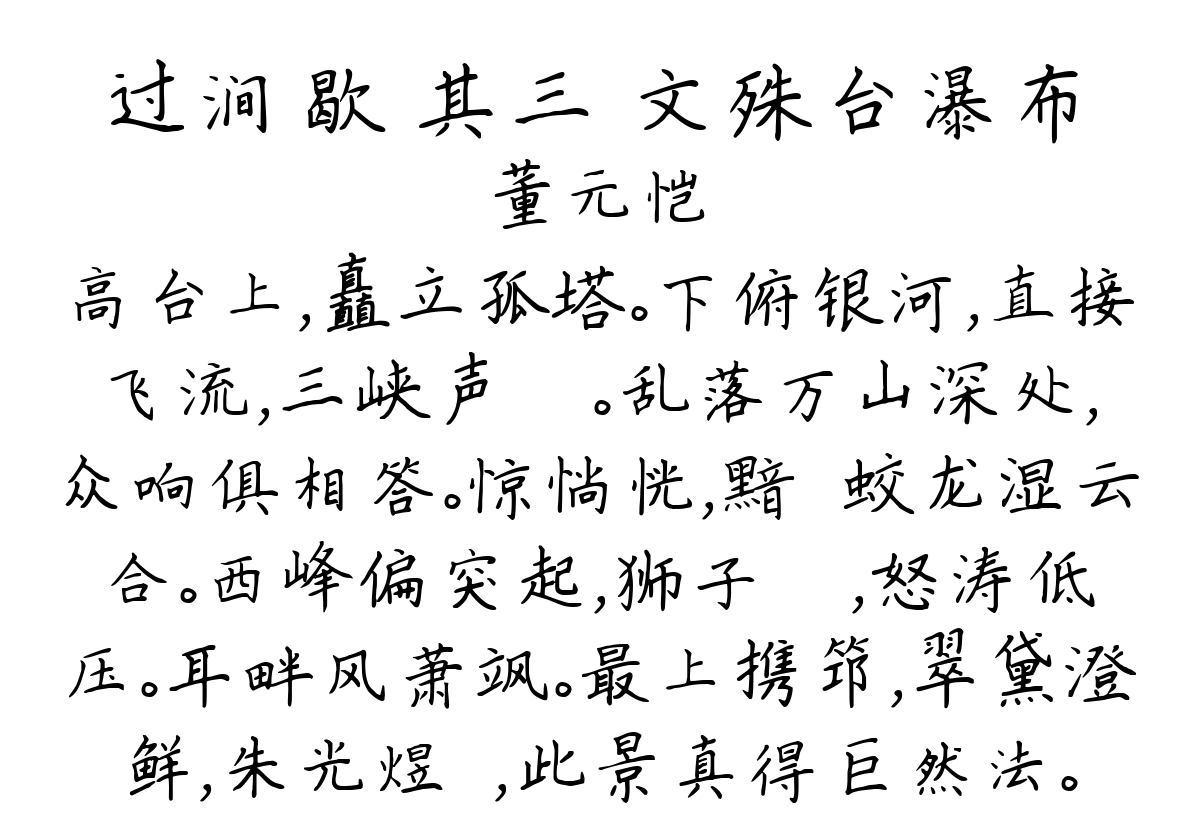 过涧歇 其三 文殊台瀑布
董元恺
高台上,矗立孤塔。下俯银河,直接
飞流,三峡声 。乱落万山深处,
众响俱相答。惊惝恍,黯 蛟龙湿云
合。西峰偏突起,狮子 ,怒涛低
压。耳畔风萧飒。最上携筇,翠黛澄
鲜,朱光煜 ,此景真得巨然法。